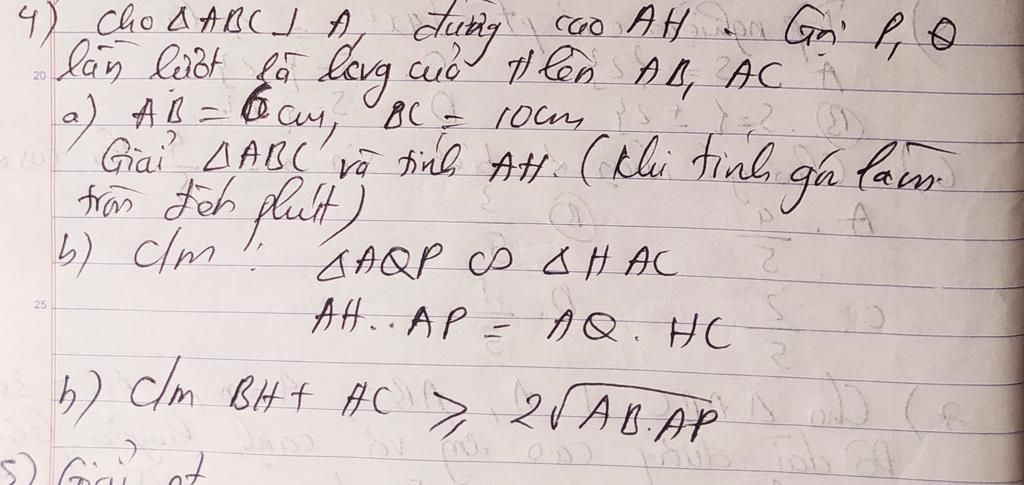 4) Cho △ABC ⊥ A, đường cao AH. Gọi P, Q
lần lượt là hình chiếu H lên AB, AC
a) AB = 6 cm, BC = 10cm
Giải △ABC và tính AH. (Khi tính góc làm
tròn đến phút)
b) C/m : △AQP ∽ △HAC
AH . AP = AQ . HC
b) C/m BH + AC ≥ 2√AB.AP
5) Giải pt